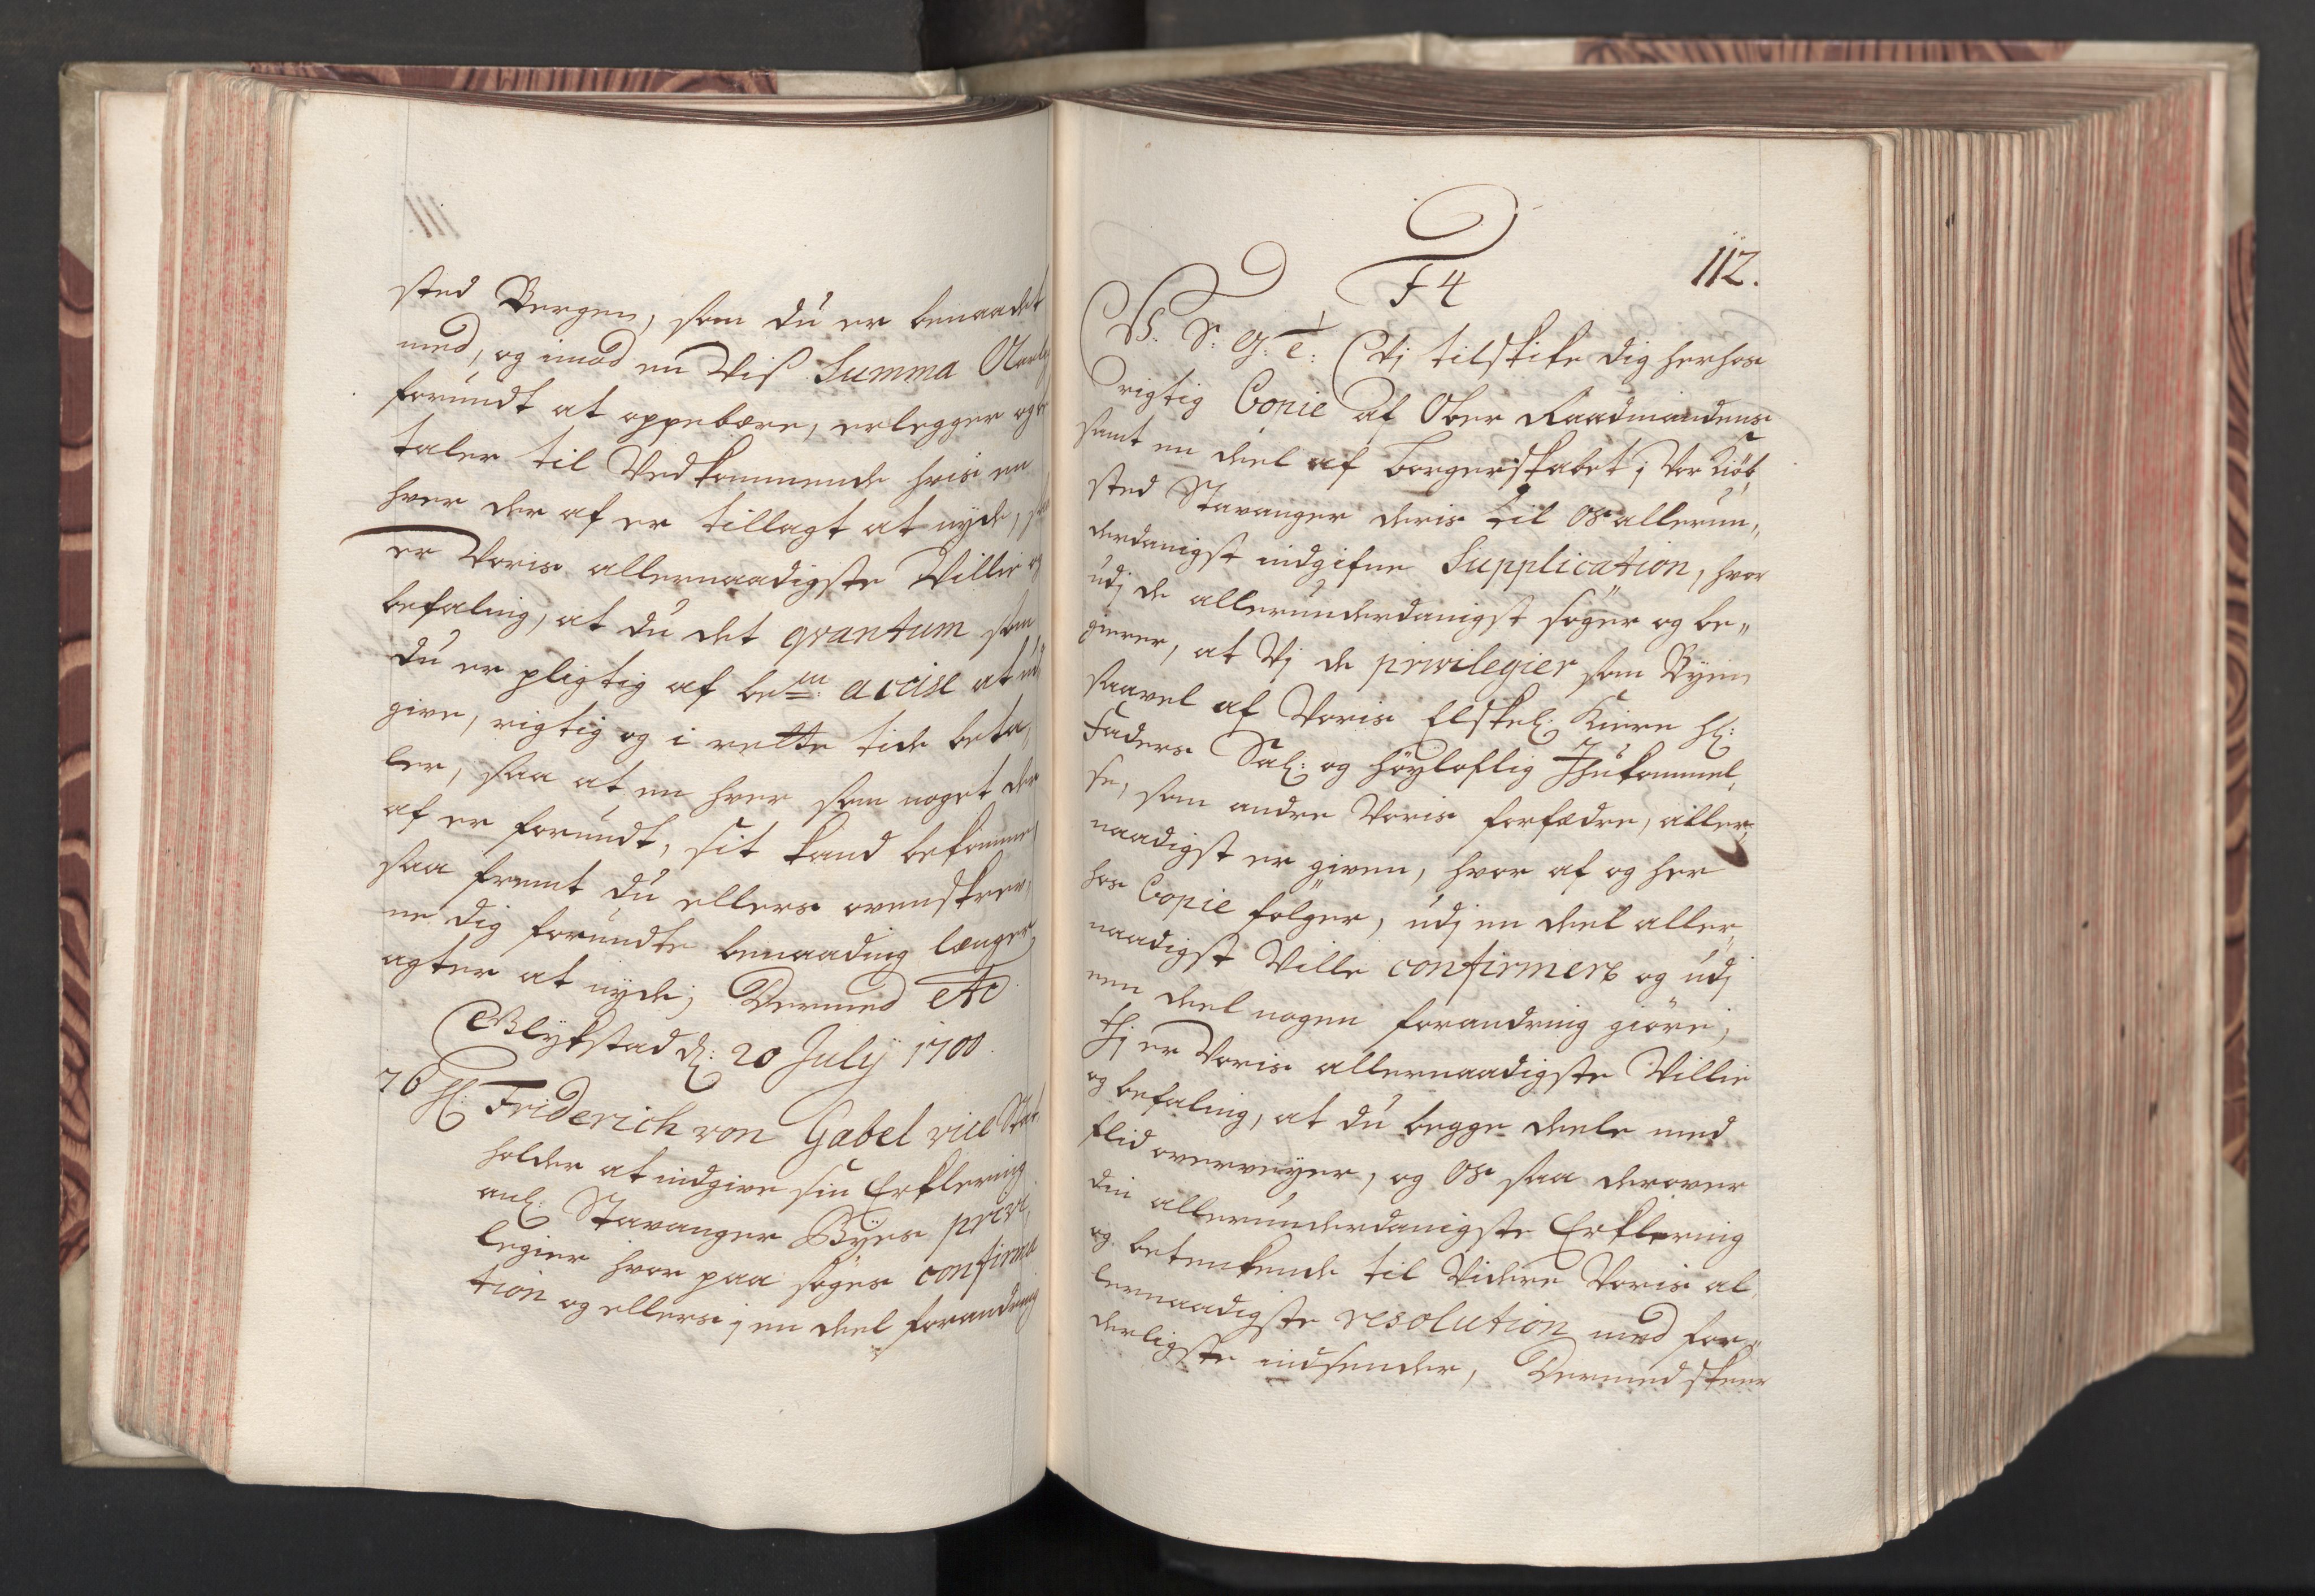 sted Bergen, som du er benaadet
med, og imod en Viß Summa Aarlig
forundt at oppebære, erlegger og be
taler til Vedkommende hvis en
hver der af er tillagt at nyde, saa
er Voris allernaadigste Villie og
befaling, at du det qvantum som
du er pligtig af bem: accise at ud
give, rigtig og i rette tide beta,
ler, saa at en hver som noget der
af er forundt, sit kand bekomme,
saa fremt du ellers ovenskrev,
ne dig forundte benaading længer
agter at nyde; Dermed etc
Glykstad d: 20 July 1700.
76 H: Friderich von Gabel vice Stat
holder at indgive sin Erklering
anl: Stavanger Byes privi,
legier hvor paa søges confirma
tion og ellers i en deel forandring
112.
F4
V. S: G: T: Vi tilskike dig herhos
rigtig Copie af Ober Raadmandens
samt en deel af borgerskabet i Vor Kiøb,
sted Stavanger deris til Os allerun,,
derdanigst indgifne Supplication, hvor
udj de allerunderdanigst søger og be,,
gierer, at Vj de privilegier som Byen
saavel af Voris Elskel: Kiere H:
Faders Sal: og høyloflig Ihukommel,
se, som andre Voris forfædre, aller,
naadigst er given, hvor af og her
hos Copie følger, udj en deel aller,
naadigst Ville confirmere og udj
een deel nogen forandring giøre;
Thj er Voris allernaadigste Villie
og befaling, at du begge deele med
flid overveyer, og Os saa derover
din allerunderdanigste Erklering
og betenkende til Videre Voris al,
lernaadigste resolution med for,,
derligste indsender, Dermed skeer